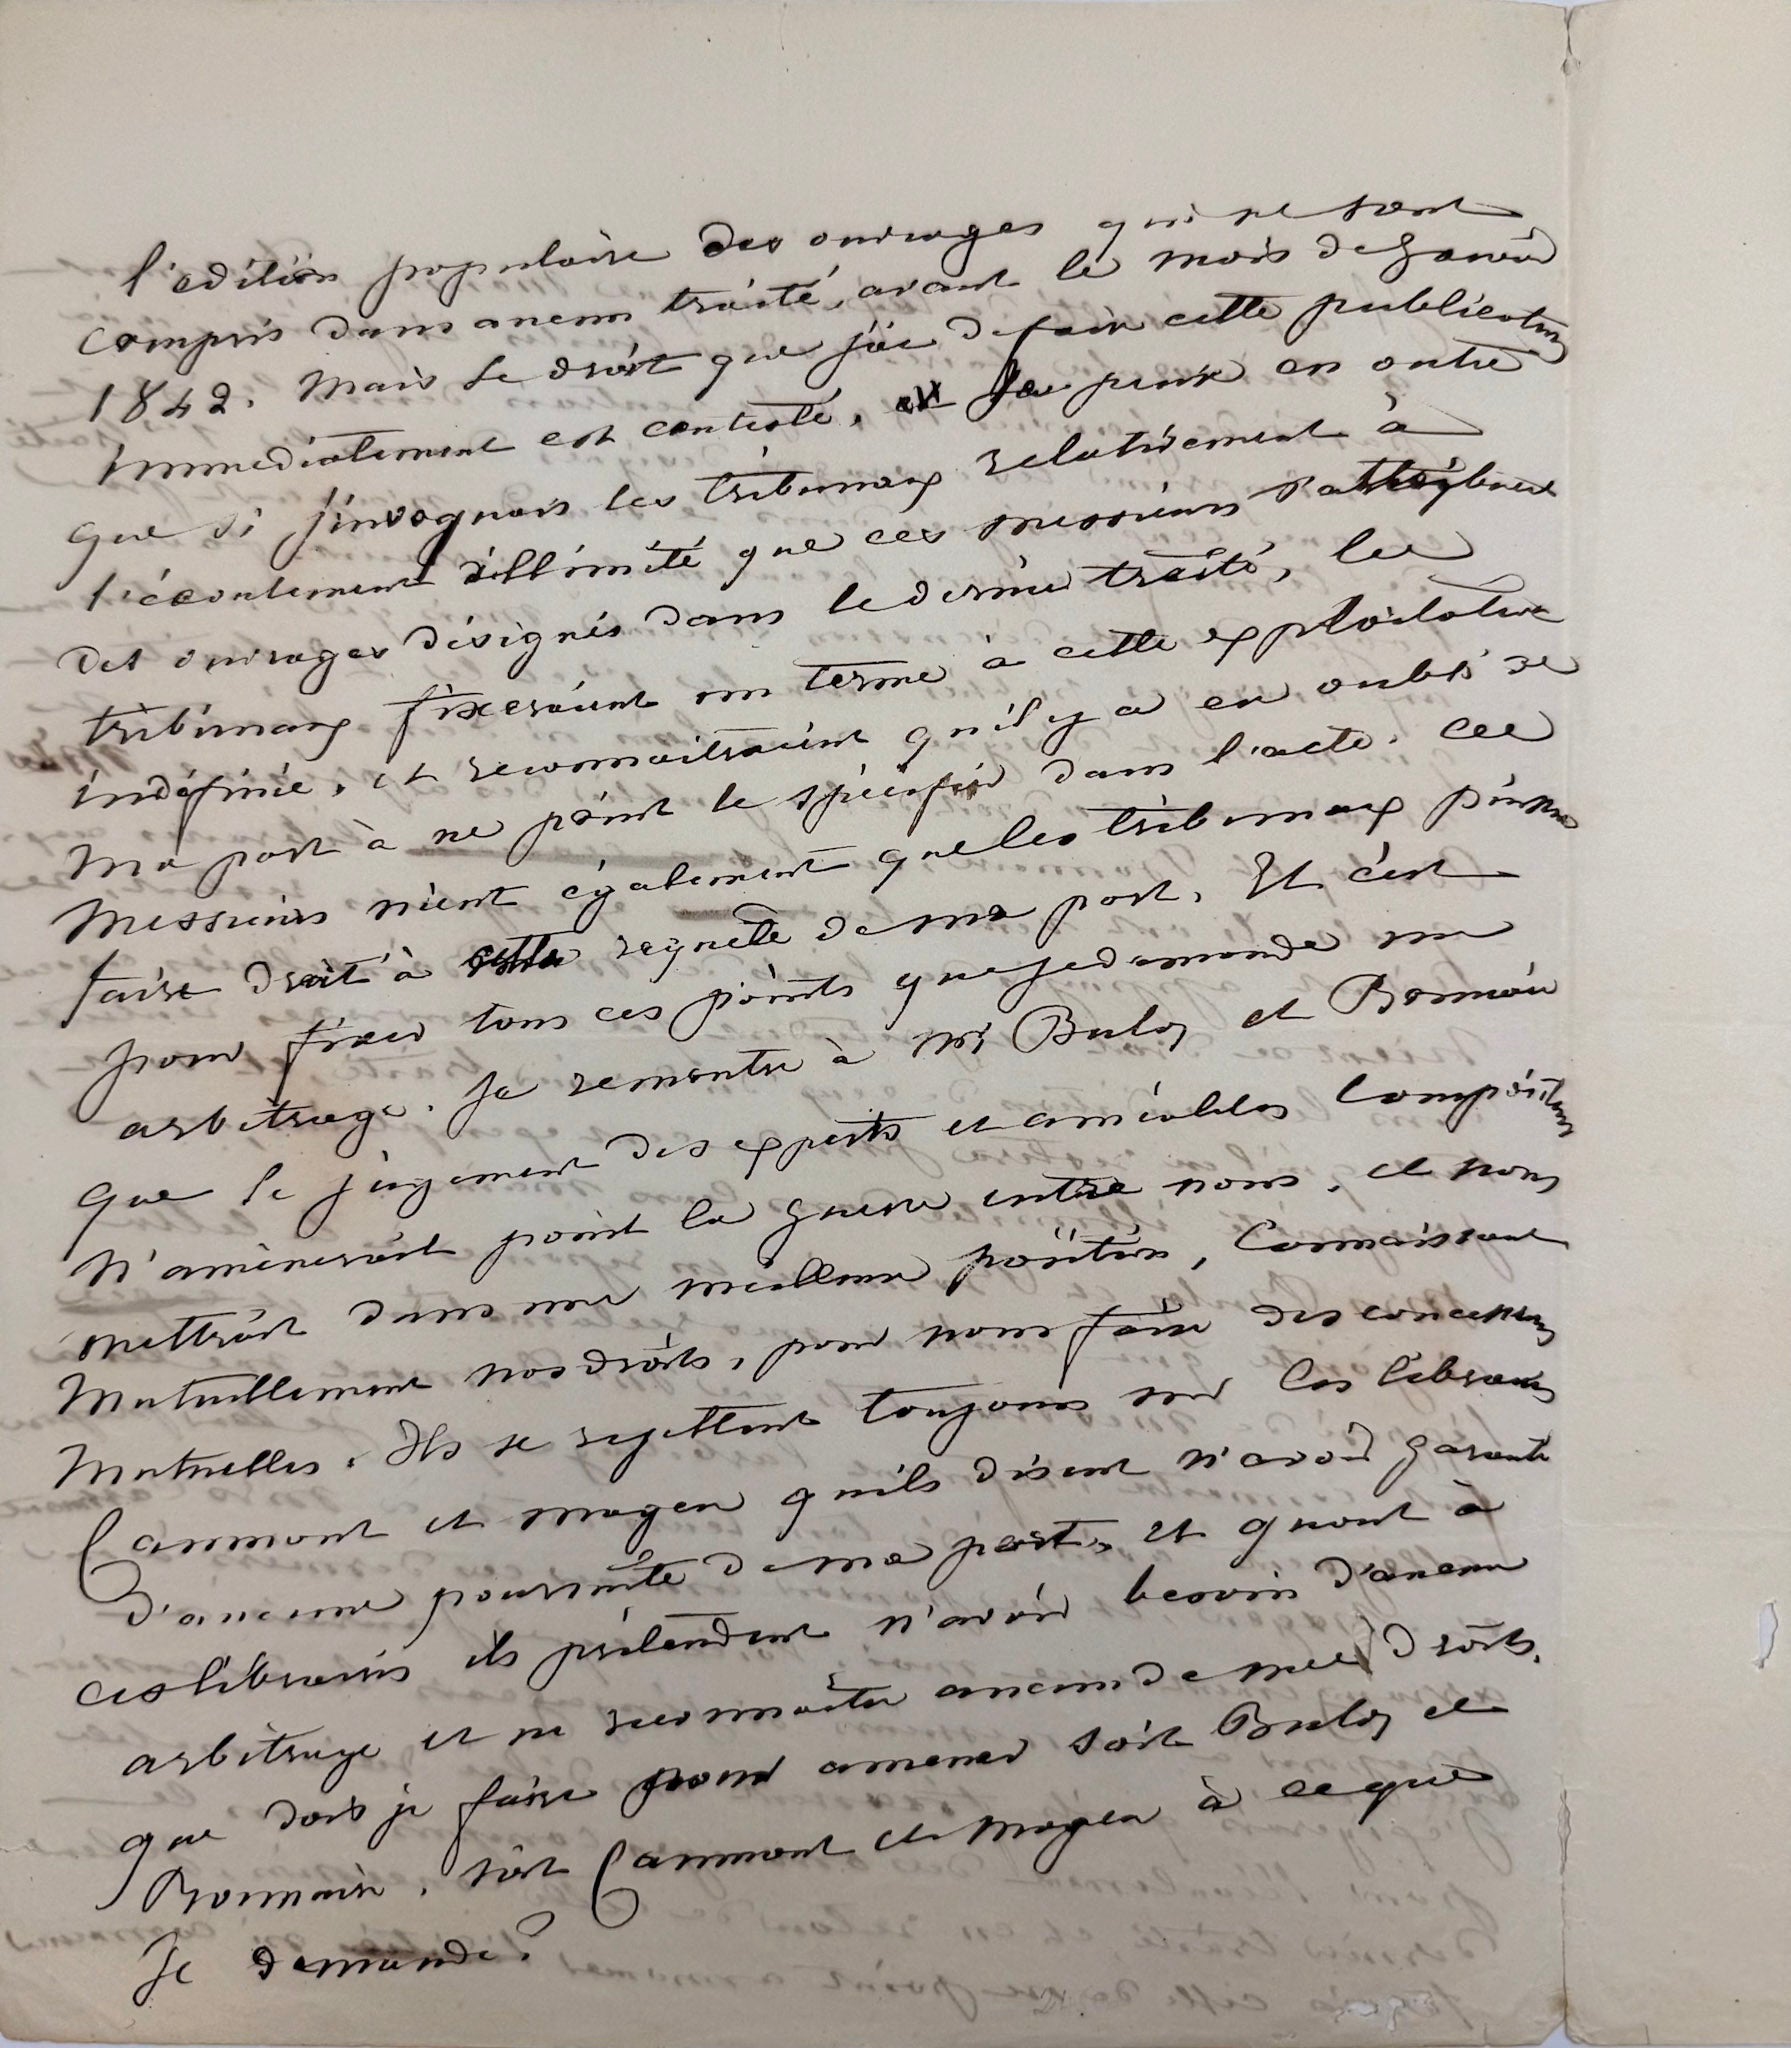 l'edition populaire des ouvrages qui ne sont
compris dans aucun traité, avant le mois de Janvier
1842. Mais le droit que j'ai de faire cette publication
immediatement est contesté, et je pense en outre
que si j'invoquais les tribunaux relativement à
l'écoulement illimité que ces messieurs s'attribuent
des ouvrages désignés dans le dernier traité, les
tribunaux fixeraient un terme à cette exploitation
indéfinie, et reconnaitraient qu'il y a eu oubli de
ma part à ne point le spécifier dans l'acte. Ces
Messieurs nient également que les tribunaux puissent
faire droit à cette requête de ma part. Et c'est
pour fixer tous ces points que je demande un
arbitrage. Je remontre à Mrs Buloz et Bonnaire
que le jugement des experts et amiables compositeurs
n'amenerait point la guerre entre nous, et nous
mettrait dans une meilleure position, connaissant
mutuellement nos droits, pour nous faire des concessions
mutuelles. Ils se rejettent toujours sur les libraires
Canmont et Magen qu'ils disent n'avoir garantis
d'aucune poursuite de ma part, et quant à
ces libraires ils prétendent n'avoir besoin d'aucun
arbitrage et ne reconnaitre aucun de mes droits.
que dois je faire pour amener soit Buloz et
Bonnaire, soit Canmont et Magen à ce que
Je demande?